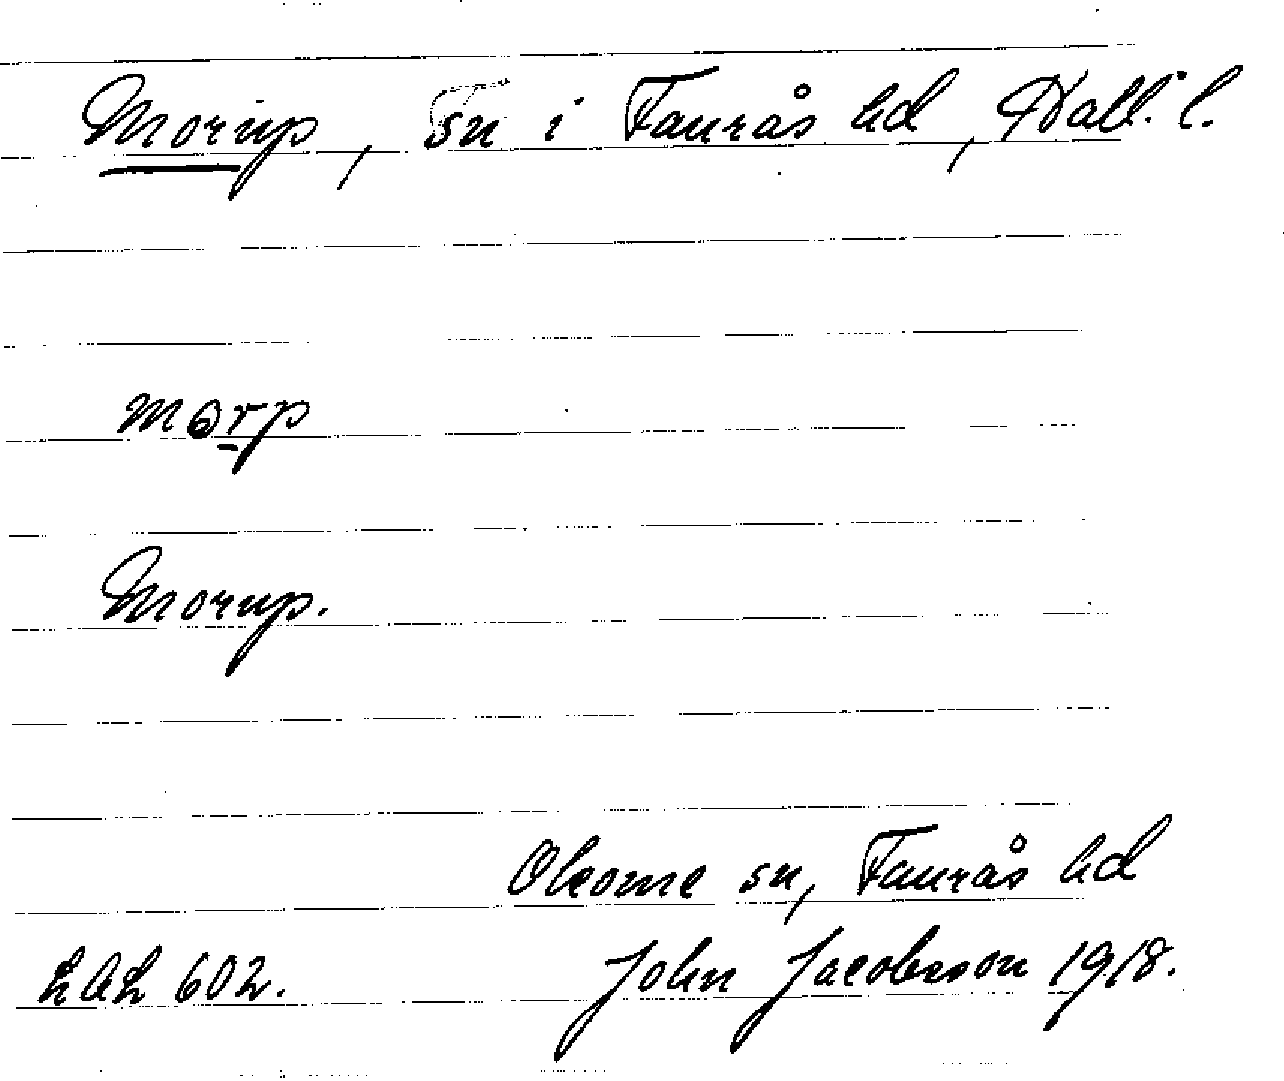 Morup, sn i Faurås hd, Hall. l.
mɵrp
Morup.
Okome sn, Faurås hd
LAL 602. John Jacobsson 1918.